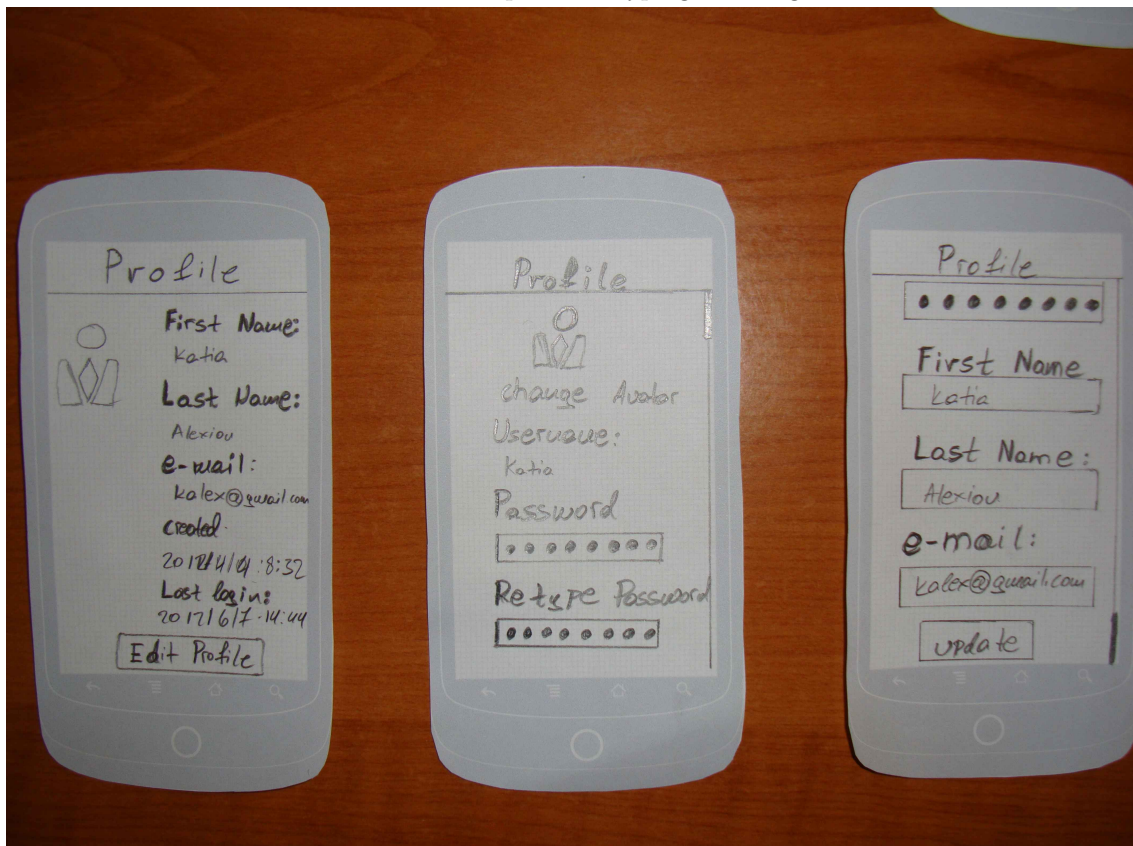 Profile
First Name:
Katia
Last Name:
Alexiou
e-mail:
kalex@gmail.com
created
:8:32
Last login:
2012/6/7-14:44
Edit Profile
Profile
change Avatar
Username:
Katia
Password
Retype Password
Profile
First Name
Katia
Last Name:
Alexiou
e-mail:
kalex@gmail.com
update